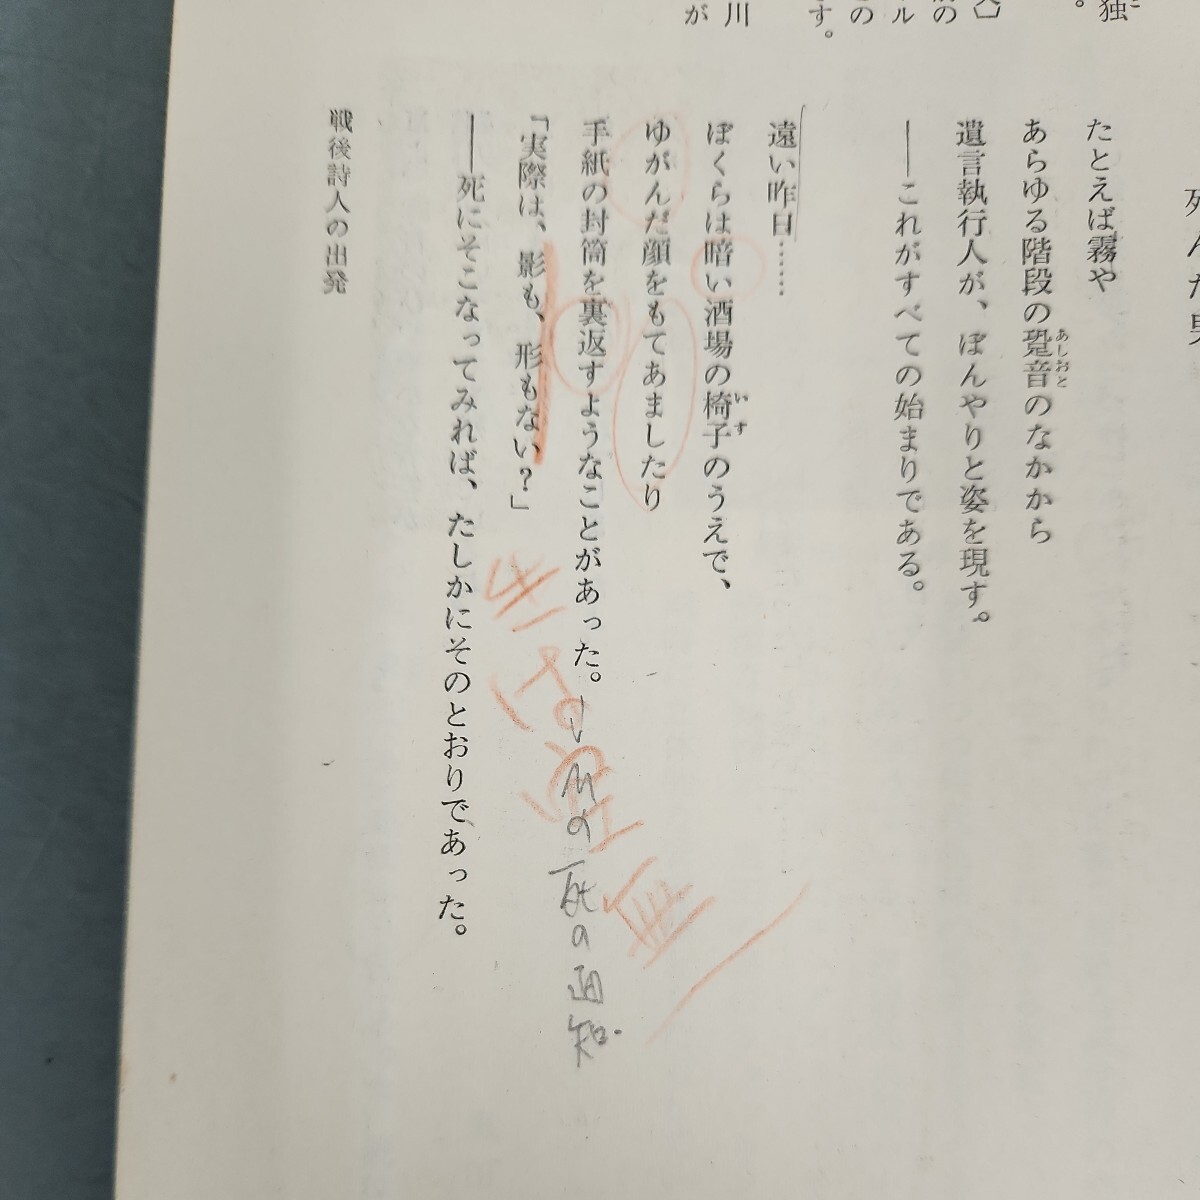 死んだ男
たとえば霧や
あらゆる階段の跫音のなかから
あしおと
遺言執行人が、ぼんやりと姿を現す。
――これがすべての始まりである。
遠い昨日……
ぼくらは暗い酒場の椅子のうえで、
いす
ゆがんだ顔をもてあましたり
手紙の封筒を裏返すようなことがあった。
「実際は、影も、形もない?」
――死にそこなってみれば、たしかにそのとおりであった。
戦後詩人の出発
の死の通知